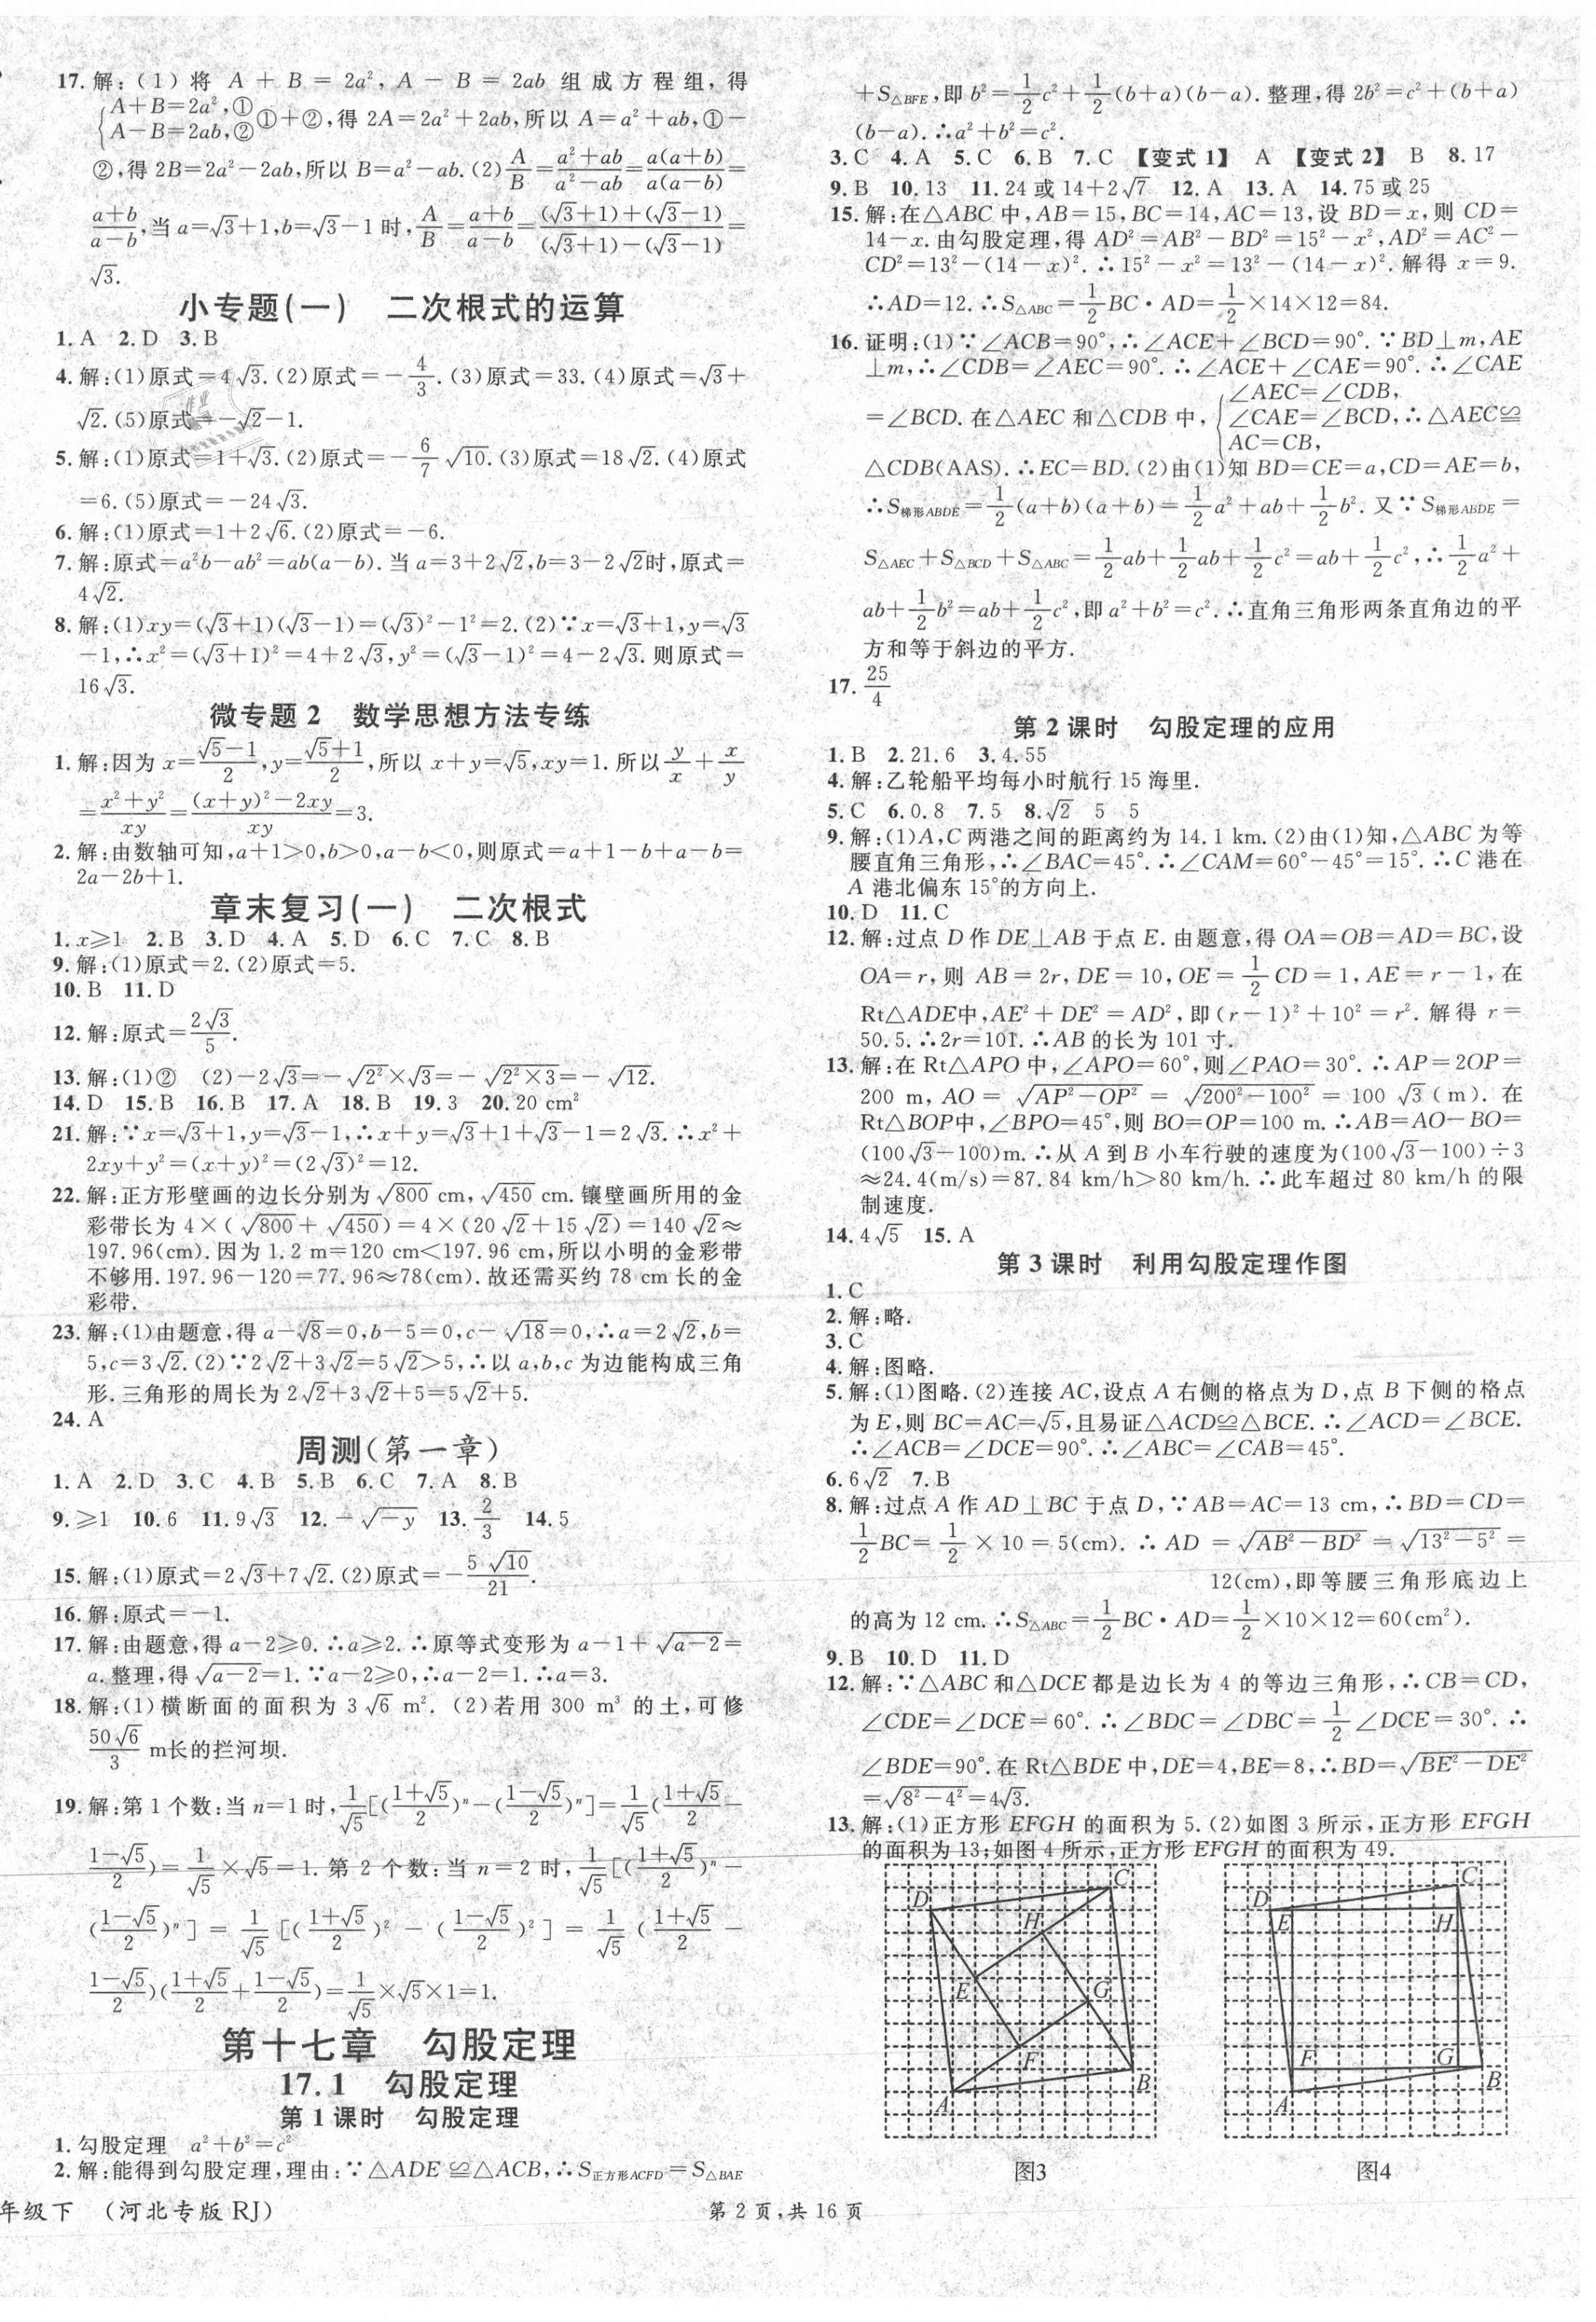 17.解:(1)将 A + B = 2a², A - B = 2ab 组成方程组,得
{A+B=2a²,① A-B=2ab,② ①+②,得 2A=2a²+2ab,所以 A=a²+ab,①-
②,得 2B=2a²-2ab,所以 B=a²-ab.(2)A/B=(a²+ab)/(a²-ab)=a(a+b)/a(a-b)=
(a+b)/(a-b),当 a=√3+1,b=√3-1 时,A/B=(a+b)/(a-b)=((√3+1)+(√3-1))/((√3+1)-(√3-1))=
√3.
小专题(一) 二次根式的运算
1.A 2.D 3.B
4.解:(1)原式=4√3.(2)原式=-4/3.(3)原式=33.(4)原式=√3+
√2.(5)原式=-√2-1.
5.解:(1)原式=1+√3.(2)原式=-6/7√10.(3)原式=18√2.(4)原式
=6.(5)原式=-24√3.
6.解:(1)原式=1+2√6.(2)原式=-6.
7.解:原式=a²b-ab²=ab(a-b).当 a=3+2√2,b=3-2√2时,原式=
4√2.
8.解:(1)xy=(√3+1)(√3-1)=(√3)²-1²=2.(2)∵x=√3+1,y=√3
-1,∴x²=(√3+1)²=4+2√3,y²=(√3-1)²=4-2√3.则原式=
16√3.
微专题2 数学思想方法专练
1.解:因为 x=(√5-1)/2,y=(√5+1)/2,所以 x+y=√5,xy=1.所以 y/x+x/y
=(x²+y²)/xy=((x+y)²-2xy)/xy=3.
2.解:由数轴可知,a+1>0,b>0,a-b<0,则原式=a+1-b+a-b=
2a-2b+1.
章末复习(一) 二次根式
1.x≥1 2.B 3.D 4.A 5.D 6.C 7.C 8.B
9.解:(1)原式=2.(2)原式=5.
10.B 11.D
12.解:原式=2√3/5.
13.解:(1)② (2)-2√3=-√2²×√3=-√(2²×3)=-√12.
14.D 15.B 16.B 17.A 18.B 19.3 20.20 cm²
21.解:∵x=√3+1,y=√3-1,∴x+y=√3+1+√3-1=2√3.∴x²+
2xy+y²=(x+y)²=(2√3)²=12.
22.解:正方形壁画的边长分别为√800 cm,√450 cm.镶壁画所用的金
彩带长为 4×(√800+√450)=4×(20√2+15√2)=140√2≈
197.96(cm).因为 1.2 m=120 cm<197.96 cm,所以小明的金彩带
不够用.197.96-120=77.96≈78(cm).故还需买约 78 cm 长的金
彩带.
23.解:(1)由题意,得 a-√8=0,b-5=0,c-√18=0,∴a=2√2,b=
5,c=3√2.(2)∵2√2+3√2=5√2>5,∴以 a,b,c 为边能构成三角
形.三角形的周长为 2√2+3√2+5=5√2+5.
24.A
周测(第一章)
1.A 2.D 3.C 4.B 5.B 6.C 7.A 8.B
9.≥1 10.6 11.9√3 12.-√-y 13.2/3 14.5
15.解:(1)原式=2√3+7√2.(2)原式=-5√10/21.
16.解:原式=-1.
17.解:由题意,得 a-2≥0.∴a≥2.∴原等式变形为 a-1+√(a-2)=
a.整理,得√(a-2)=1.∵a-2≥0,∴a-2=1.∴a=3.
18.解:(1)横断面的面积为 3√6 m². (2)若用 300 m³ 的土,可修
50√6/3 m长的拦河坝.
19.解:第 1 个数:当 n=1 时,1/√5[((1+√5)/2)ⁿ-((1-√5)/2)ⁿ]=1/√5((1+√5)/2-
(1-√5)/2)=1/√5×√5=1.第 2 个数:当 n=2 时,1/√5[((1+√5)/2)ⁿ-
((1-√5)/2)ⁿ]=1/√5[((1+√5)/2)²-((1-√5)/2)²]=1/√5((1+√5)/2-
(1-√5)/2)((1+√5)/2+(1-√5)/2)=1/√5×√5×1=1.
第十七章 勾股定理
17.1 勾股定理
第1课时 勾股定理
1.勾股定理 a²+b²=c²
2.解:能得到勾股定理,理由:∵△ADE≌△ACB,∴S正方形ACFD=S△BAE
+S△BFE,即 b²=1/2c²+1/2(b+a)(b-a).整理,得 2b²=c²+(b+a)
(b-a).∴a²+b²=c².
3.C 4.A 5.C 6.B 7.C 【变式1】 A 【变式2】 B 8.17
9.B 10.13 11.24 或 14+2√7 12.A 13.A 14.75 或 25
15.解:在△ABC 中,AB=15,BC=14,AC=13,设 BD=x,则 CD=
14-x.由勾股定理,得 AD²=AB²-BD²=15²-x²,AD²=AC²-
CD²=13²-(14-x)².∴15²-x²=13²-(14-x)².解得 x=9.
∴AD=12.∴S△ABC=1/2BC·AD=1/2×14×12=84.
16.证明:(1)∵∠ACB=90°,∴∠ACE+∠BCD=90°.∵BD⊥m,AE
⊥m,∴∠CDB=∠AEC=90°.∴∠ACE+∠CAE=90°.∴∠CAE
=∠BCD.在△AEC 和△CDB 中,{∠AEC=∠CDB, ∠CAE=∠BCD, AC=CB, ∴△AEC≌
△CDB(AAS).∴EC=BD.(2)由(1)知 BD=CE=a,CD=AE=b,
∴S梯形ABDE=1/2(a+b)(a+b)=1/2a²+ab+1/2b².又∵S梯形ABDE=
S△AEC+S△BCD+S△ABC=1/2ab+1/2ab+1/2c²=ab+1/2c²,∴1/2a²+
ab+1/2b²=ab+1/2c²,即 a²+b²=c².∴直角三角形两条直角边的平
方和等于斜边的平方.
17.25/4
第2课时 勾股定理的应用
1.B 2.21.6 3.4.55
4.解:乙轮船平均每小时航行 15 海里.
5.C 6.0.8 7.5 8.√2 5 5
9.解:(1)A,C 两港之间的距离约为 14.1 km.(2)由(1)知,△ABC 为等
腰直角三角形,∴∠BAC=45°.∴∠CAM=60°-45°=15°.∴C 港在
A 港北偏东 15°的方向上.
10.D 11.C
12.解:过点 D 作 DE⊥AB 于点 E.由题意,得 OA=OB=AD=BC,设
OA=r,则 AB=2r,DE=10,OE=1/2CD=1,AE=r-1,在
Rt△ADE中,AE²+DE²=AD²,即(r-1)²+10²=r².解得 r=
50.5.∴2r=101.∴AB 的长为 101 寸.
13.解:在 Rt△APO 中,∠APO=60°,则∠PAO=30°.∴AP=2OP=
200 m,AO=√(AP²-OP²)=√(200²-100²)=100√3(m).在
Rt△BOP中,∠BPO=45°,则 BO=OP=100 m.∴AB=AO-BO=
(100√3-100)m.∴从 A 到 B 小车行驶的速度为(100√3-100)÷3
≈24.4(m/s)=87.84 km/h>80 km/h.∴此车超过 80 km/h 的限
制速度.
14.4√5 15.A
第3课时 利用勾股定理作图
1.C
2.解:略.
3.C
4.解:图略.
5.解:(1)图略.(2)连接 AC,设点 A 右侧的格点为 D,点 B 下侧的格点
为 E,则 BC=AC=√5,且易证△ACD≌△BCE.∴∠ACD=∠BCE.
∴∠ACB=∠DCE=90°.∴∠ABC=∠CAB=45°.
6.6√2 7.B
8.解:过点 A 作 AD⊥BC 于点 D,∵AB=AC=13 cm,∴BD=CD=
1/2BC=1/2×10=5(cm).∴AD=√(AB²-BD²)=√(13²-5²)=
12(cm),即等腰三角形底边上
的高为 12 cm.∴S△ABC=1/2BC·AD=1/2×10×12=60(cm²).
9.B 10.D 11.D
12.解:∵△ABC 和△DCE 都是边长为 4 的等边三角形,∴CB=CD,
∠CDE=∠DCE=60°.∴∠BDC=∠DBC=1/2∠DCE=30°.∴
∠BDE=90°.在 Rt△BDE 中,DE=4,BE=8,∴BD=√(BE²-DE²)
=√(8²-4²)=4√3.
13.解:(1)正方形 EFGH 的面积为 5.(2)如图 3 所示,正方形 EFGH
的面积为 13;如图 4 所示,正方形 EFGH 的面积为 49.
D C H E G F B A
D C E H F G B A
图3 图4
年级下 (河北专版 RJ)
第 2 页,共 16 页